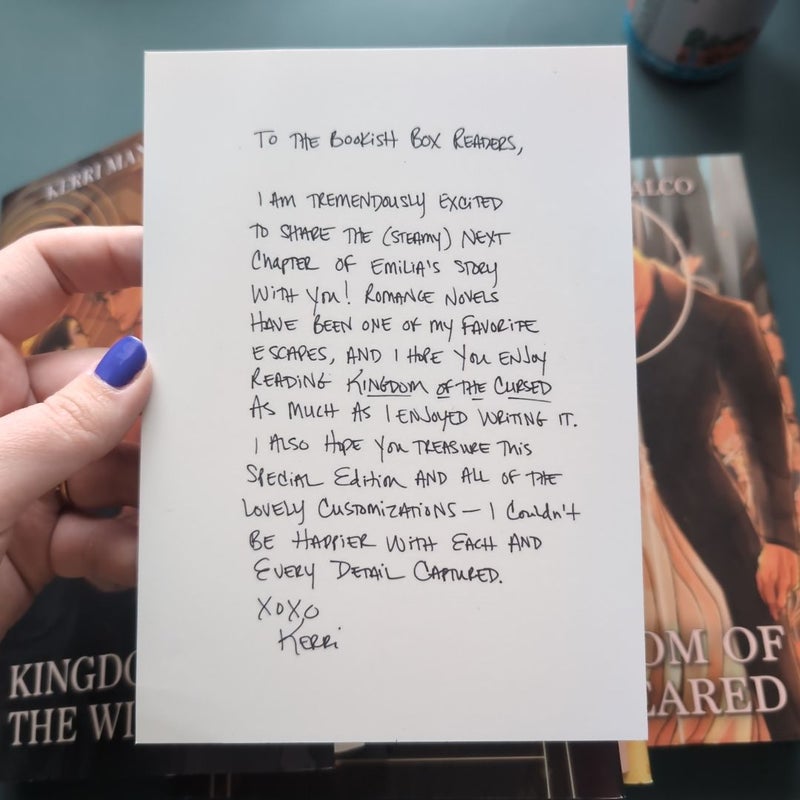 TO THE BOOKISH BOX READERS,
I AM TREMENDOUSLY EXCITED
TO SHARE THE (STEAMY) NEXT
CHAPTER OF EMILIA'S STORY
WITH YOU! ROMANCE NOVELS
HAVE BEEN ONE OF MY FAVORITE
ESCAPES, AND I HOPE YOU ENJOY
READING KINGDOM OF THE CURSED
AS MUCH AS I ENJOYED WRITING IT.
I ALSO HOPE YOU TREASURE THIS
SPECIAL EDITION AND ALL OF THE
LOVELY CUSTOMIZATIONS — I COULDN'T
BE HAPPIER WITH EACH AND
EVERY DETAIL CAPTURED.
XOXO
KERRI
KERRI MAN
ALCO
KINGDO
THE WI
OM OF
EARED